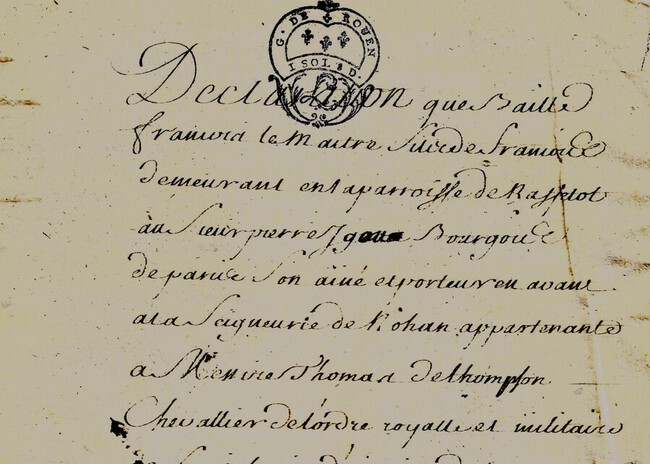 G. DE ROUEN
1 SOL 8 D.
Declaration que Baille
francois le Maitre fils de francois
demeurant en la parroisse de
au Sieur pierre Bourgois
de paris Son ainé et porteur en avant
a la Seigneurie de Rohan appartenante
a Messire Thomas de thompson
Chevallier de l'ordre royalle et militaire